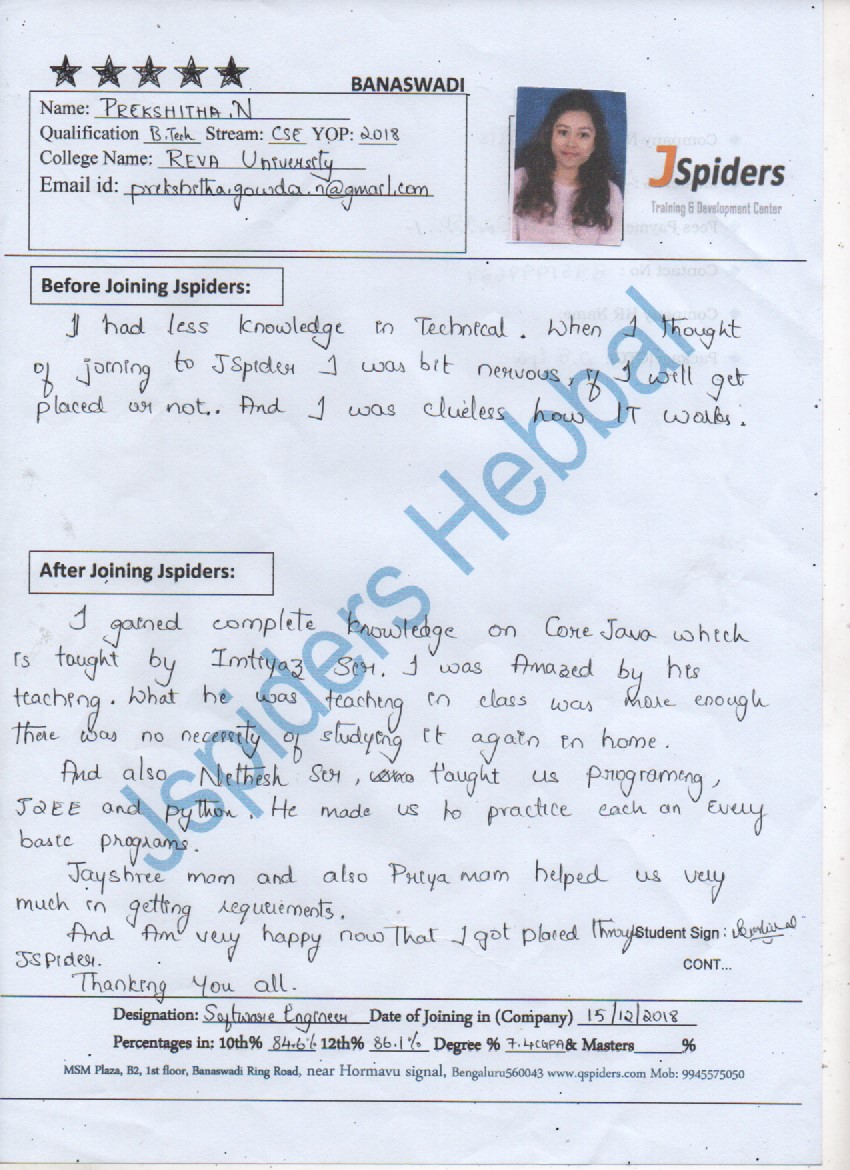 BANASWADI
Name: PREKSHITHA.N
Qualification B.Tech Stream: CSE YOP: 2018
College Name: REVA University
Email id: prekshitha.gowda.n@gmail.com
JSpiders
Training & Development Center
Before Joining Jspiders:
I had less knowledge in Technical. When I thought
of joining to JSpider I was bit nervous, if I will get
placed or not.. And I was clueless how IT works.
After Joining Jspiders:
I gained complete knowledge on Core Java which
is taught by Imtiyaz Sir. I was Amazed by his
teaching. What he was teaching in class was more enough
there was no necessity of studying it again in home.
And also Nethesh Sir, taught us programing,
J2EE and python. He made us to practice each an Every
basic programs.
Jayshree mam and also Priya mam helped us very
much in getting requirements.
And Am very happy now That I got placed throug Student Sign :
JSpider.
CONT...
Thanking You all.
Designation: Software Engineer Date of Joining in (Company) 15/12/2018
Percentages in: 10th% 84.6% 12th% 86.1% Degree % 7.4CGPA & Masters_____%
MSM Plaza, B2, 1st floor, Banaswadi Ring Road, near Hormavu signal, Bengaluru560043 www.qspiders.com Mob: 9945575050
Jspiders Hebbal